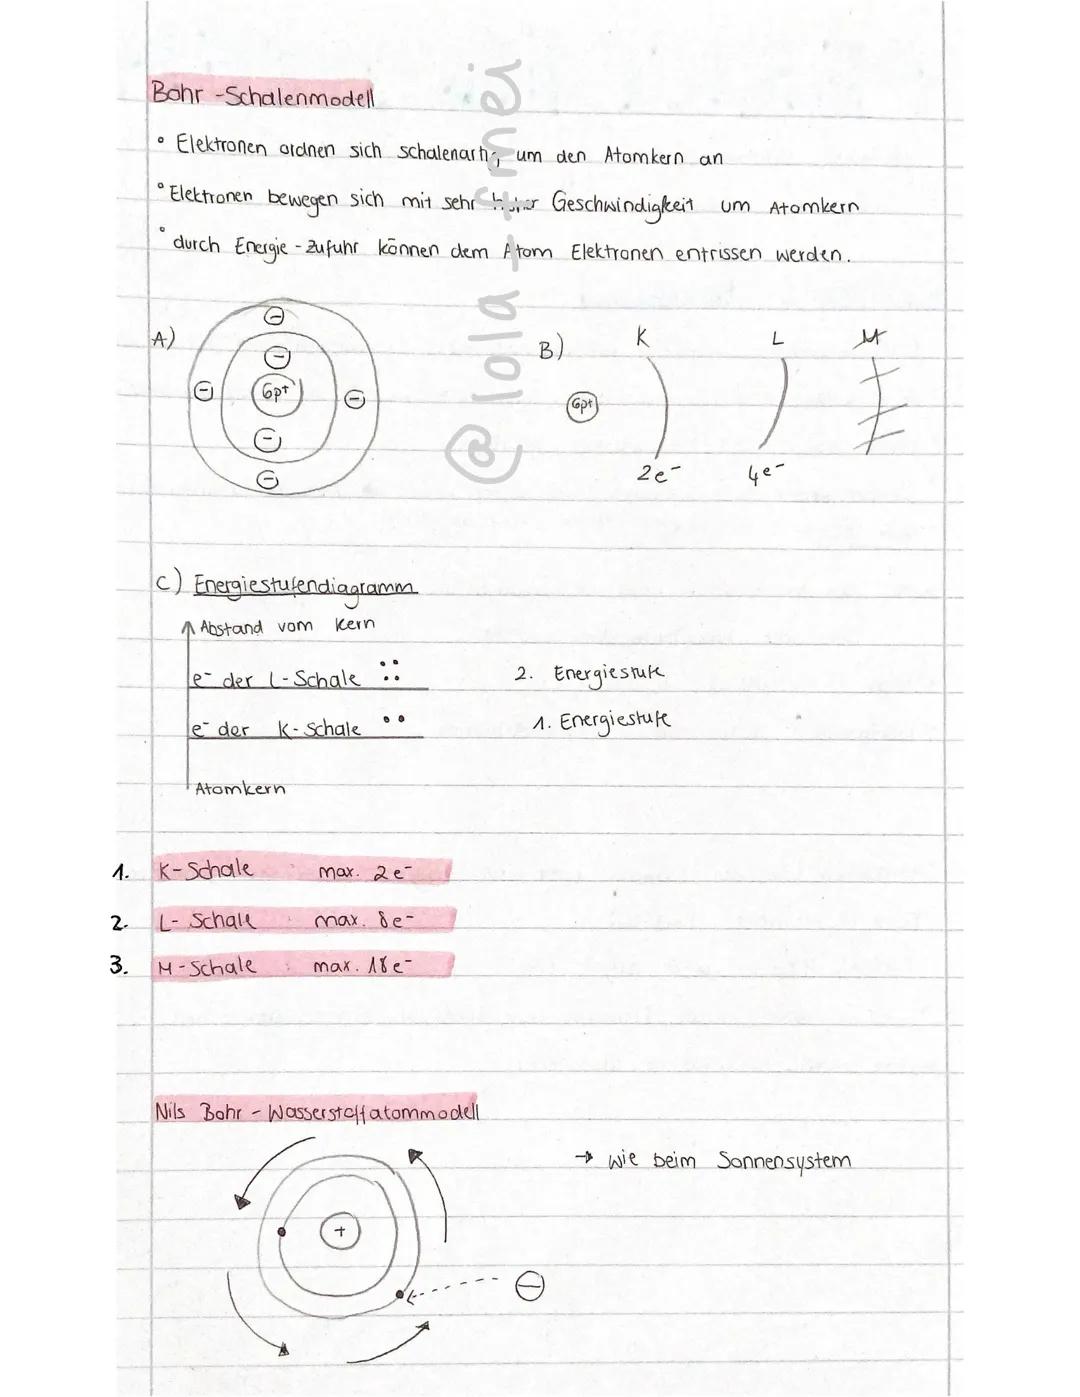 Bohr - Schalenmodell
° Elektronen ordnen sich schalenartig um den Atomkern an
° Elektronen bewegen sich mit sehr hoher Geschwindigkeit um Atomkern
° durch Energie - Zufuhr können dem Atom Elektronen entrissen werden.
@lola-fnei
A)
6p+
B) K L M
6p+
2e- 4e-
C) Energiestufendiagramm
Abstand vom Kern
e- der L-Schale 2. Energiestufe
e- der K-Schale 1. Energiestufe
Atomkern
1. K-Schale max. 2e-
2. L-Schale max. 8e-
3. M-Schale max. 18e-
Nils Bohr - Wasserstoffatommodell
→ wie beim Sonnensystem
+